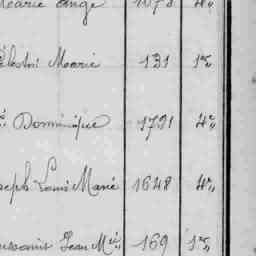 Marie Ange 1078 4°,,
Célestri Marie 131 1°,,
Dominique 1791 4°,,
Joseph Louis Marie 1648 4°,,
Jean M.ie 169 1°,,